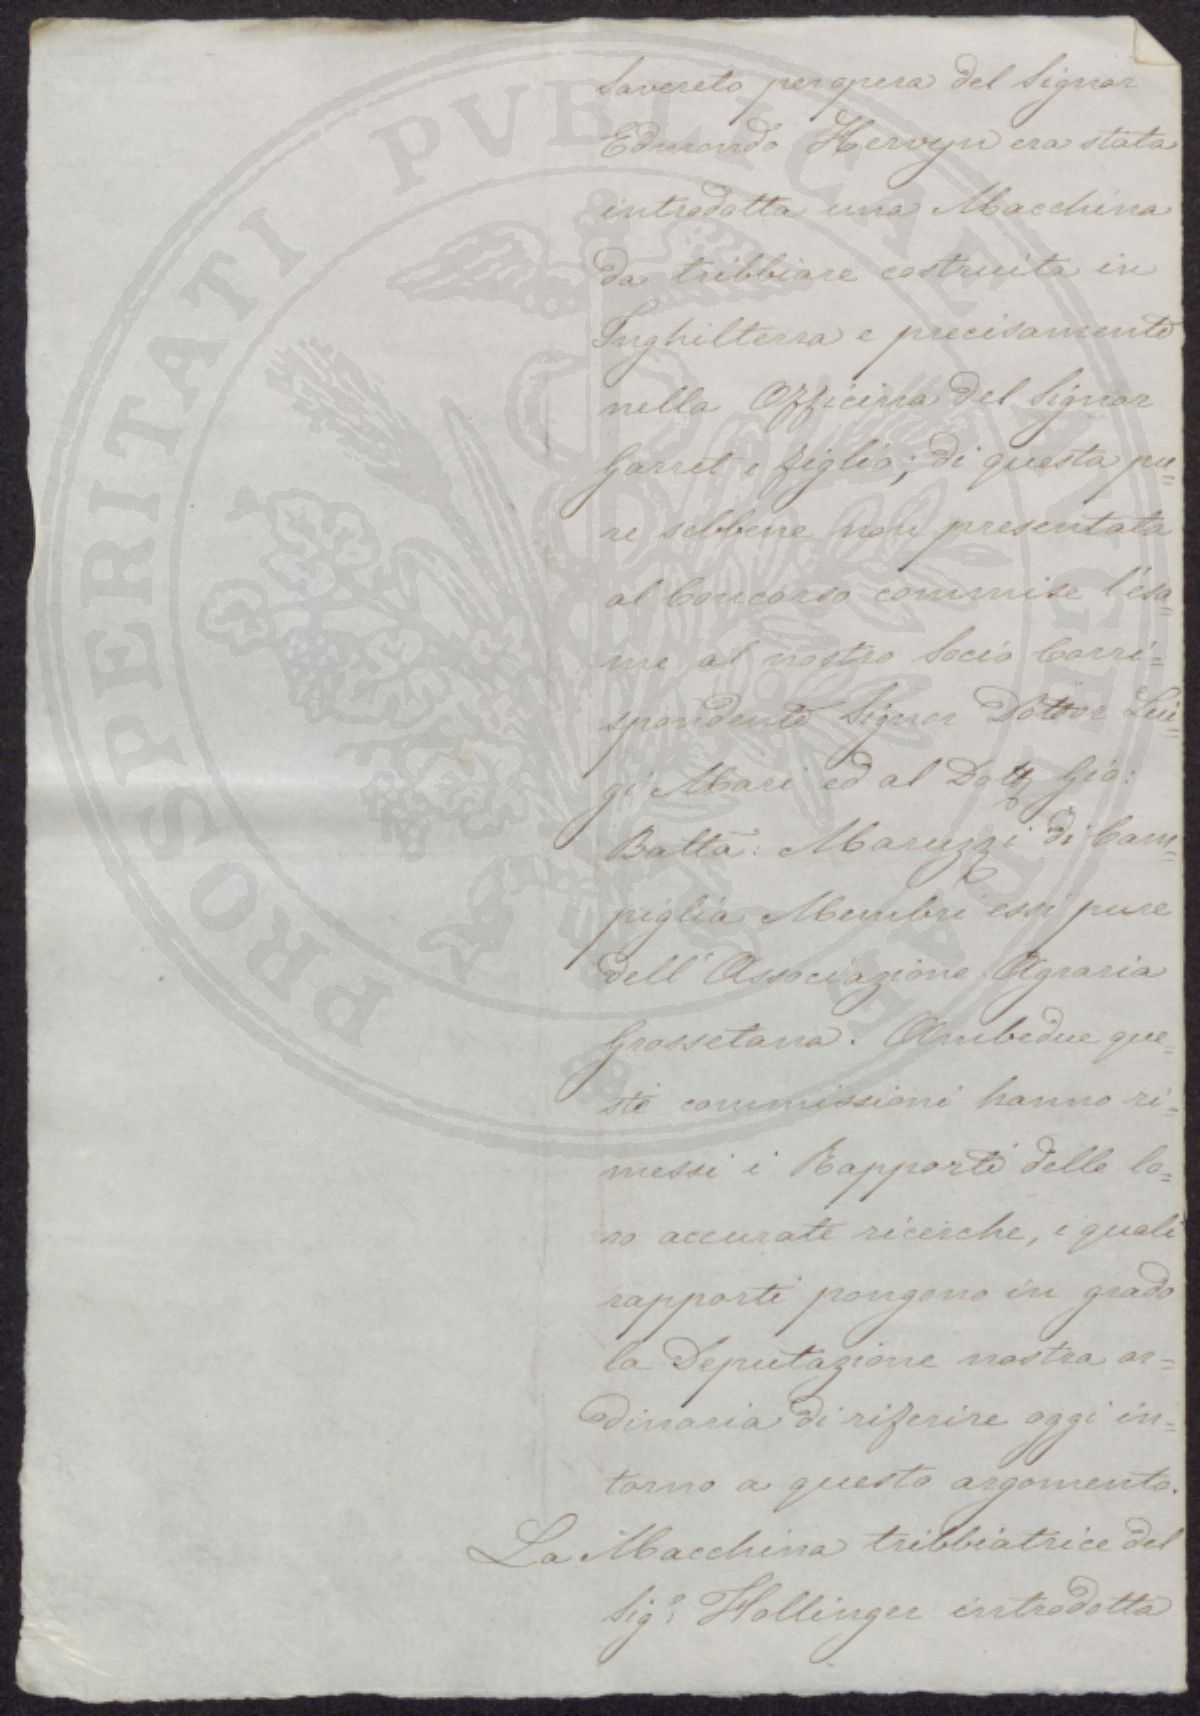 Savereto per opera del Signor
Edmondo Hervyn era stata
introdotta una Macchina
da tribbiare costruita in
Inghilterra e precisamente
nella Officina del Signor
Garret e figlio; di questa pu=
re sebbene non presentata
al Concorso commise l'esa=
me al nostro Socio Corri=
spondente Signor Dottor Lui=
gi Mari ed al Dott. Gio:
Batta: Maruzzi di Cam=
piglia Membri essi pure
dell'Associazione Agraria
Grossetana. Ambedue que=
ste commissioni hanno ri=
messi i Rapporti delle lo=
ro accurate ricerche, i quali
rapporti pongono in grado
la Deputazione nostra or=
dinaria di riferire oggi in=
torno a questo argomento.
La Macchina tribbiatrice del
Sig.r Hollinger introdotta
PROSPERITATI PUBLICAE AUGENDAE